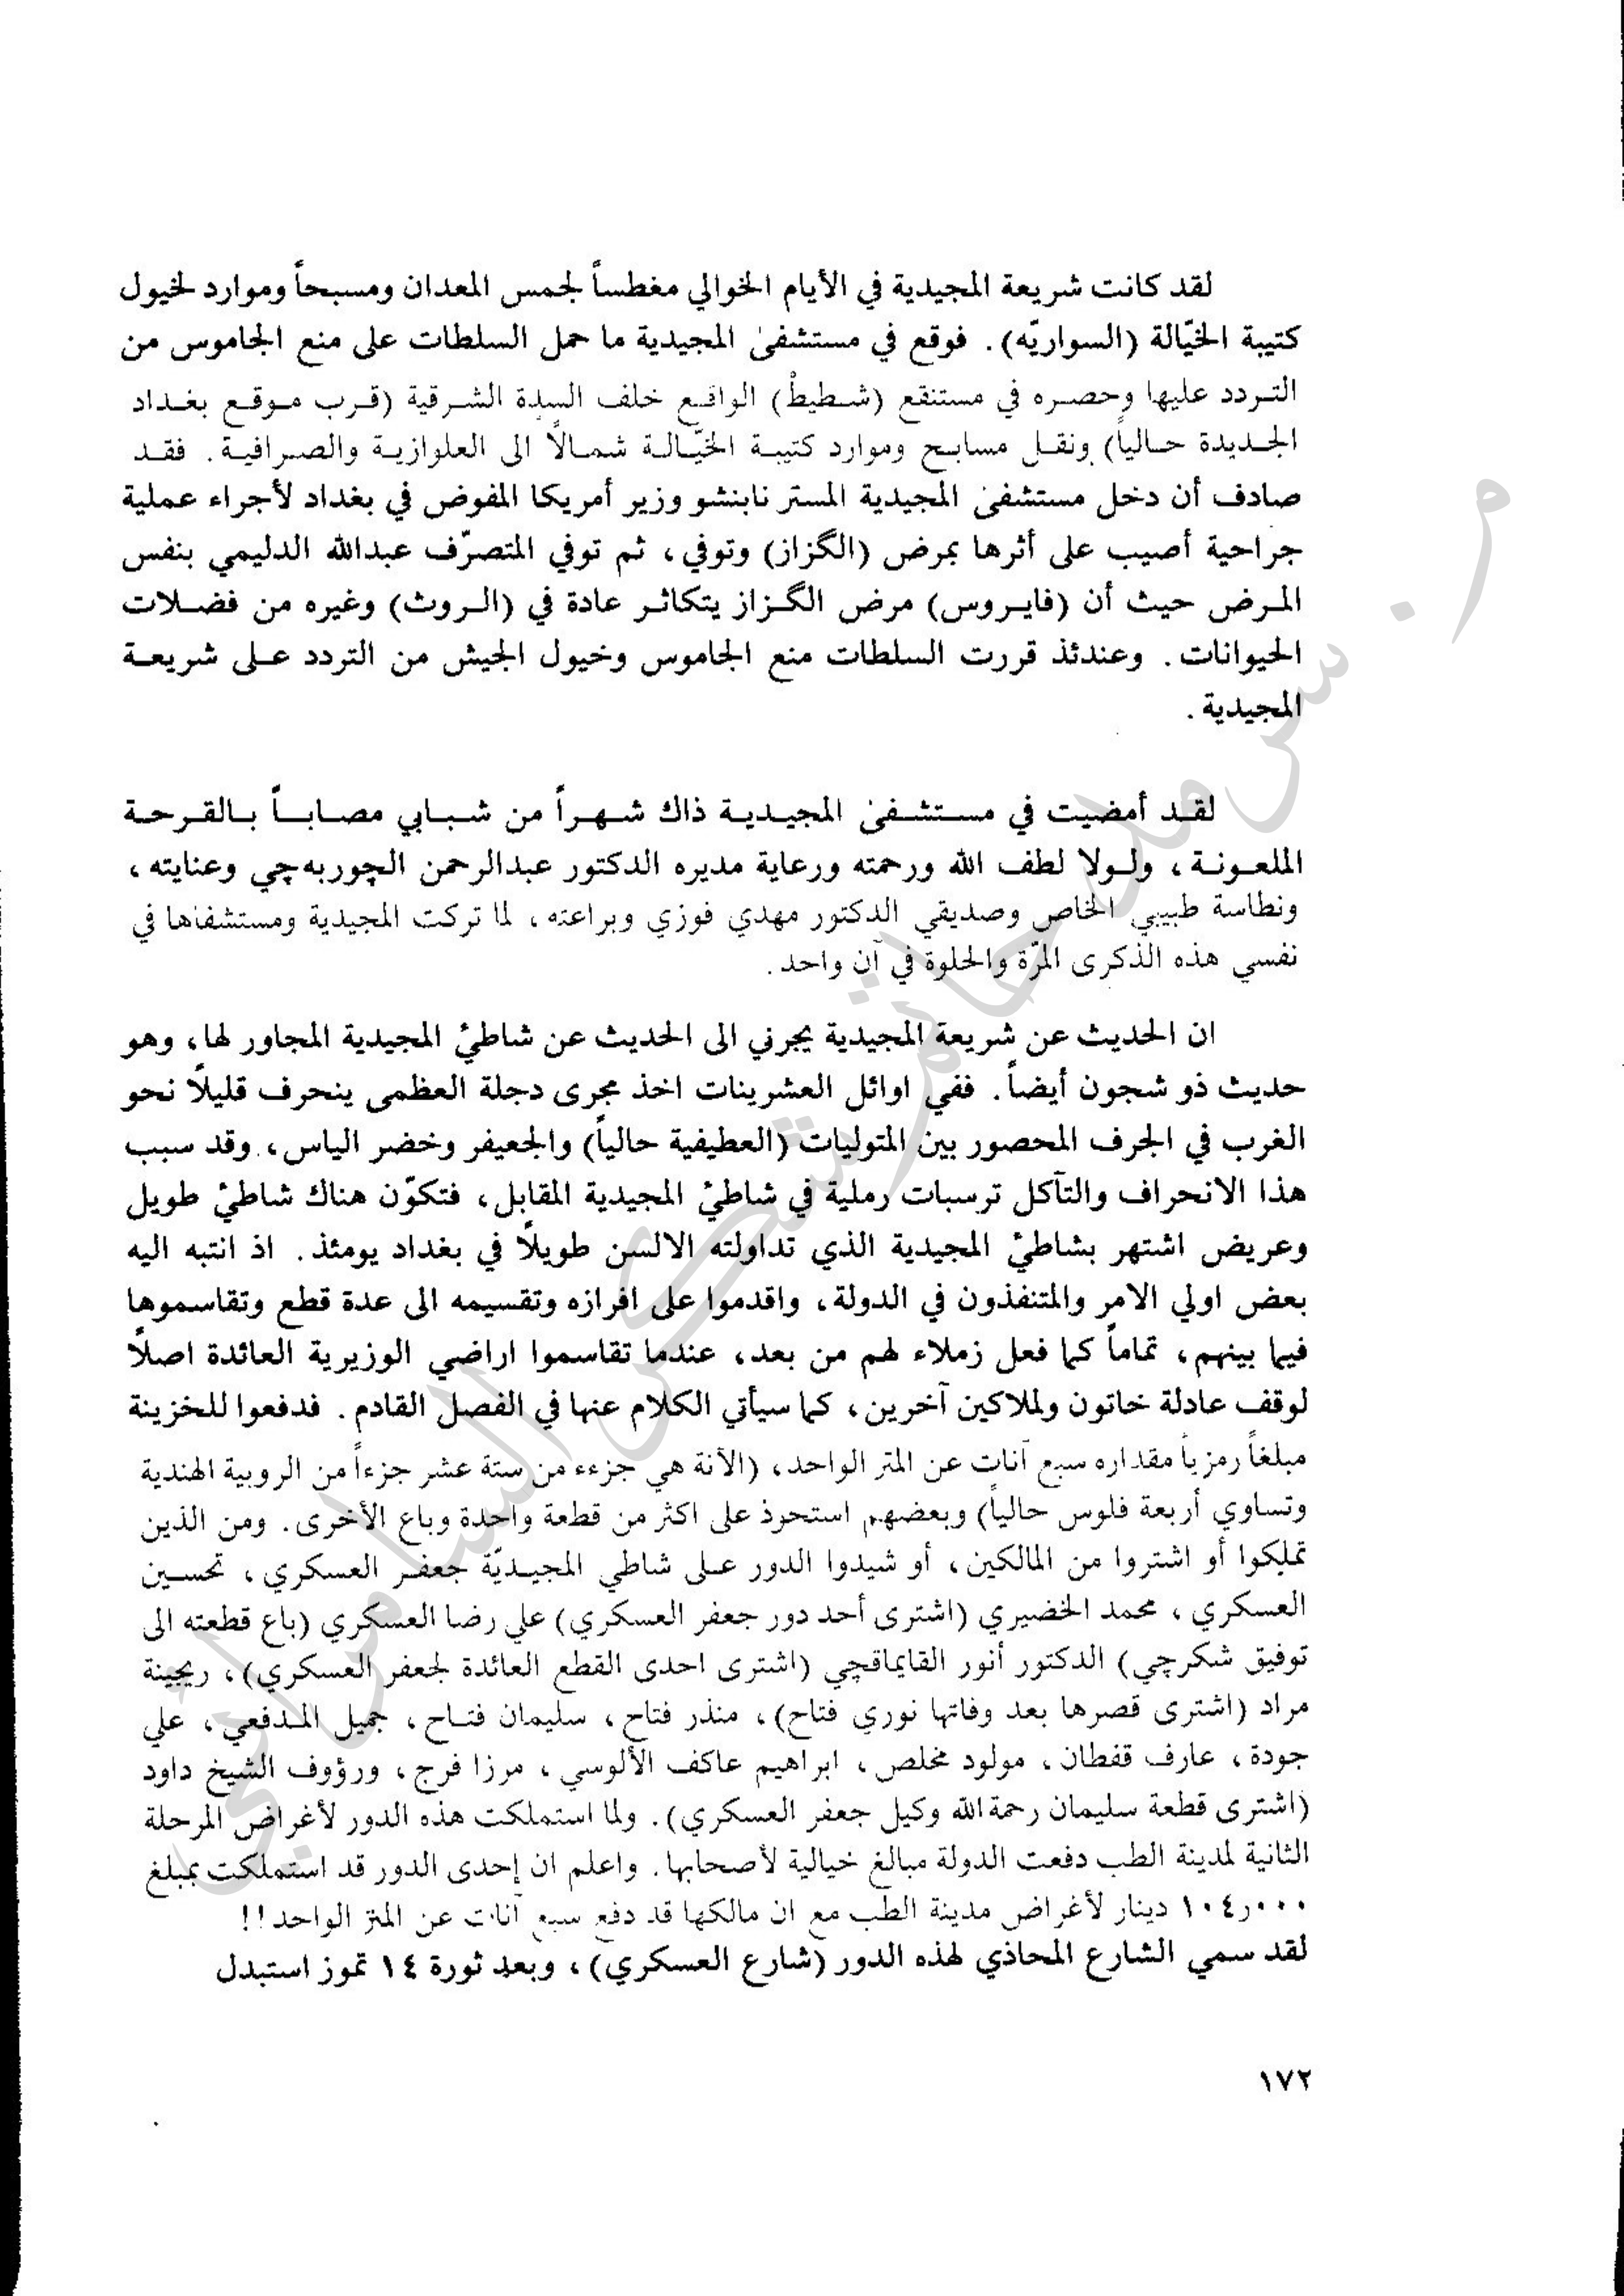 لقد كانت شريعة المجيدية في الأيام الخوالي مغطساً لجمس المعدان ومسبحاً وموارد لخيول
كتيبة الخيّالة (السواريّه). فوقع في مستشفىٰ المجيدية ما حمل السلطات على منع الجاموس من
التردد عليها وحصره في مستنقع (شطيط) الواقع خلف السدة الشرقية (قرب موقع بغداد
الجديدة حالياً) ونقل مسابح وموارد كتيبة الخيّالة شمالاً الى العلوازية والصرافية. فقد
صادف أن دخل مستشفىٰ المجيدية المستر نابنشو وزير أمريكا المفوض في بغداد لأجراء عملية
جراحية أصيب على أثرها بمرض (الگزاز) وتوفي، ثم توفي المتصرّف عبدالله الدليمي بنفس
المرض حيث أن (فايروس) مرض الگزاز يتكاثر عادة في (الروث) وغيره من فضلات
الحيوانات. وعندئذ قررت السلطات منع الجاموس وخيول الجيش من التردد على شريعة
المجيدية.
لقد أمضيت في مستشفىٰ المجيدية ذاك شهراً من شبابي مصاباً بالقرحة
الملعونة، ولولا لطف الله ورحمته ورعاية مديره الدكتور عبدالرحمن الچوربه‌چي وعنايته،
ونطاسة طبيبي الخاص وصديقي الدكتور مهدي فوزي وبراعته، لما تركت المجيدية ومستشفاها في
نفسي هذه الذكرى المرّة والحلوة في آن واحد.
ان الحديث عن شريعة المجيدية يجرني الى الحديث عن شاطئ المجيدية المجاور لها، وهو
حديث ذو شجون أيضاً. ففي اوائل العشرينات اخذ مجرى دجلة العظمى ينحرف قليلاً نحو
الغرب في الجرف المحصور بين المتوليات (العطيفية حالياً) والجعيفر وخضر الياس، وقد سبب
هذا الانحراف والتآكل ترسبات رملية في شاطئ المجيدية المقابل، فتكوّن هناك شاطئ طويل
وعريض اشتهر بشاطئ المجيدية الذي تداولته الالسن طويلاً في بغداد يومئذ. اذ انتبه اليه
بعض اولي الامر والمتنفذون في الدولة، واقدموا على افرازه وتقسيمه الى عدة قطع وتقاسموها
فيما بينهم، تماماً كما فعل زملاء لهم من بعد، عندما تقاسموا اراضي الوزيرية العائدة اصلاً
لوقف عادلة خاتون ولملاكين آخرين، كما سيأتي الكلام عنها في الفصل القادم. فدفعوا للخزينة
مبلغاً رمزياً مقداره سبع آنات عن المتر الواحد، (الآنة هي جزءه من ستة عشر جزءاً من الروبية الهندية
وتساوي أربعة فلوس حالياً) وبعضهم استحوذ على اكثر من قطعة واحدة وباع الأخرى. ومن الذين
تملكوا أو اشتروا من المالكين، أو شيدوا الدور على شاطي المجيديّة جعفر العسكري، تحسين
العسكري، محمد الخضيري (اشترى أحد دور جعفر العسكري) علي رضا العسكري (باع قطعته الى
توفيق شكرچي) الدكتور أنور القايماقچي (اشترى احدى القطع العائدة لجعفر العسكري)، ريجينة
مراد (اشترى قصرها بعد وفاتها نوري فتاح)، منذر فتاح، سليمان فتاح، جميل المدفعي، علي
جودة، عارف قفطان، مولود مخلص، ابراهيم عاكف الألوسي، مرزا فرج، ورؤوف الشيخ داود
(اشترى قطعة سليمان رحمة الله وكيل جعفر العسكري). ولما استملكت هذه الدور لأغراض المرحلة
الثانية لمدينة الطب دفعت الدولة مبالغ خيالية لأصحابها. واعلم ان إحدى الدور قد استملكت بمبلغ
١٠٤ر٠٠٠ دينار لأغراض مدينة الطب مع ان مالكها قد دفع سبع آنات عن المتر الواحد!!
لقد سمي الشارع المحاذي لهذه الدور (شارع العسكري)، وبعد ثورة ١٤ تموز استبدل
١٧٢
م. سرمد حاتم شكر السامرائي